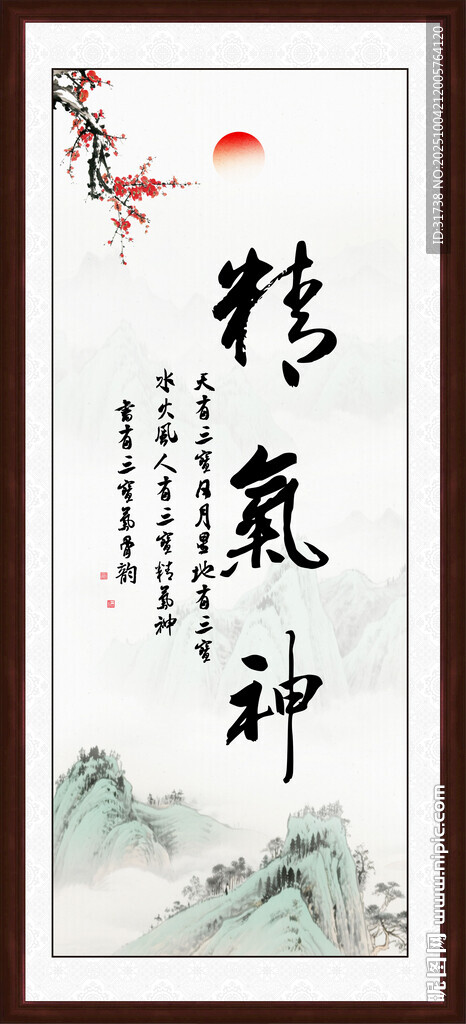 精氣神
天有三寳日月星地有三寳
水火風人有三寳精氣神
書有三寳氣骨韵
ID:31738 NO:20251004212005764120
昵图网 www.nipic.com